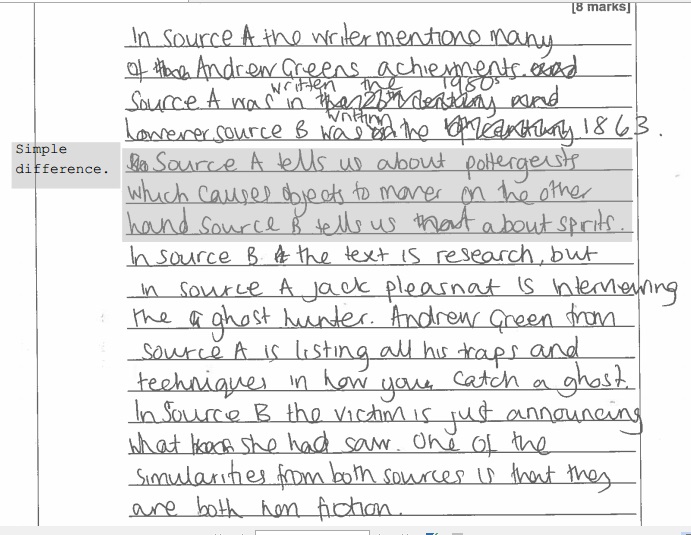 [8 marks]
In Source A the writer mentions many
of Andrew Greens achievments. and
written the 1980s
Source A was in and
writtin
however source B was on the 1863.
Simple
difference.
Source A tells us about poltergeists
which causes objects to mover on the other
hand Source B tells us about sprits.
In source B the text is research, but
in source A jack plearsnat is interviewing
the ghost hunter. Andrew Green from
source A is listing all his traps and
techniques in how you catch a ghost.
In Source B the victim is just announcing
what she had saw. One of the
simularities from both sources is that they
are both non fiction.